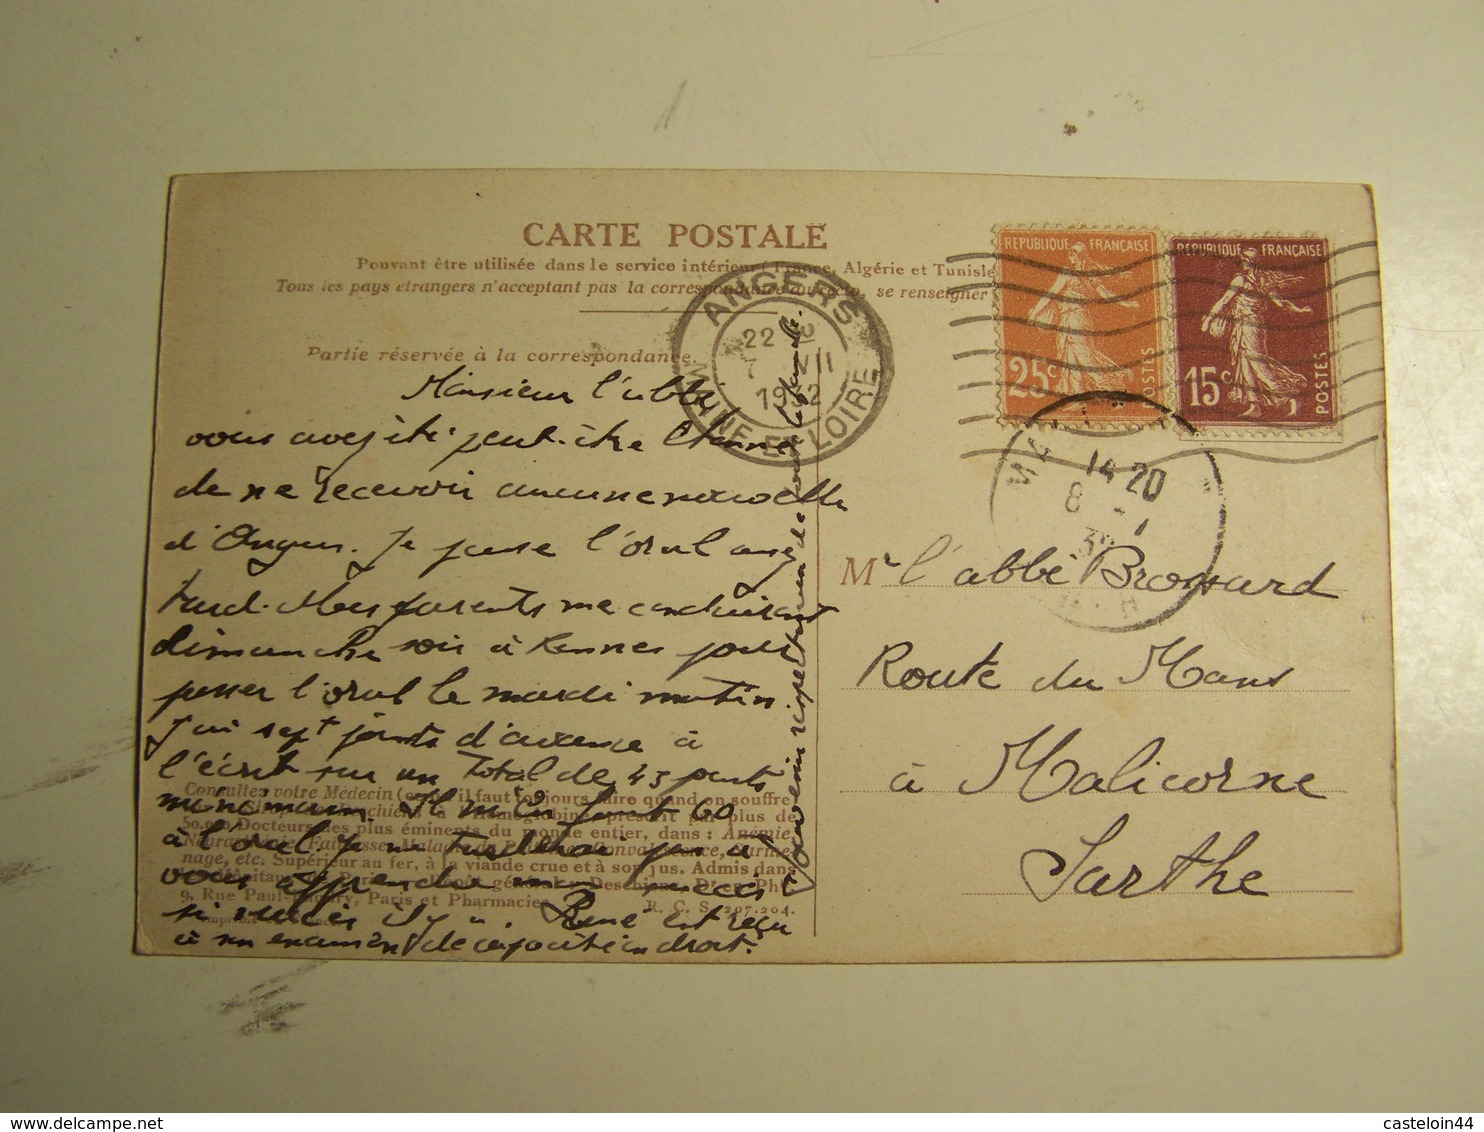 CARTE POSTALE
Pouvant être utilisée dans le service intérieur (France, Algérie et Tunisie
Tous les pays étrangers n'acceptant pas la correspondance au recto, se renseigner
Partie réservée à la correspondance.
ANGERS
22
7 II
1932
MAINE ET LOIRE
REPUBLIQUE FRANÇAISE
25c
POSTES
REPUBLIQUE FRANÇAISE
15c
POSTES
14 20
8
Monsieur l'abbé
vous avez été peut-être étonné
de ne recevoir aucune nouvelle
d'Angers. Je passe l'oral assez
tard. Mes parents me conduiront
dimanche soir à Rennes pour
passer l'oral le mardi matin
J'ai sept points d'avance à
l'écrit sur un total de 45 points
minimum. Il m'en faut 60
à l'oral. Je ne
vous apprendre mon succès
si succès il y a. René est reçu
à un examen de capacité en droit.
Souvenir respectueux de toute la famille.
Consultez votre Médecin il faut toujours faire quand on souffre
50.000 Docteurs des plus éminents du monde entier, dans : Anémie,
nage, etc. Supérieur au fer, à la viande crue et à son jus. Admis dans
9, Rue Paul-Baudry, Paris et Pharmacies
R. C. S. 207.204.
Mr l'abbé Brossard
Route du Mans
à Malicorne
Sarthe
casteloin44